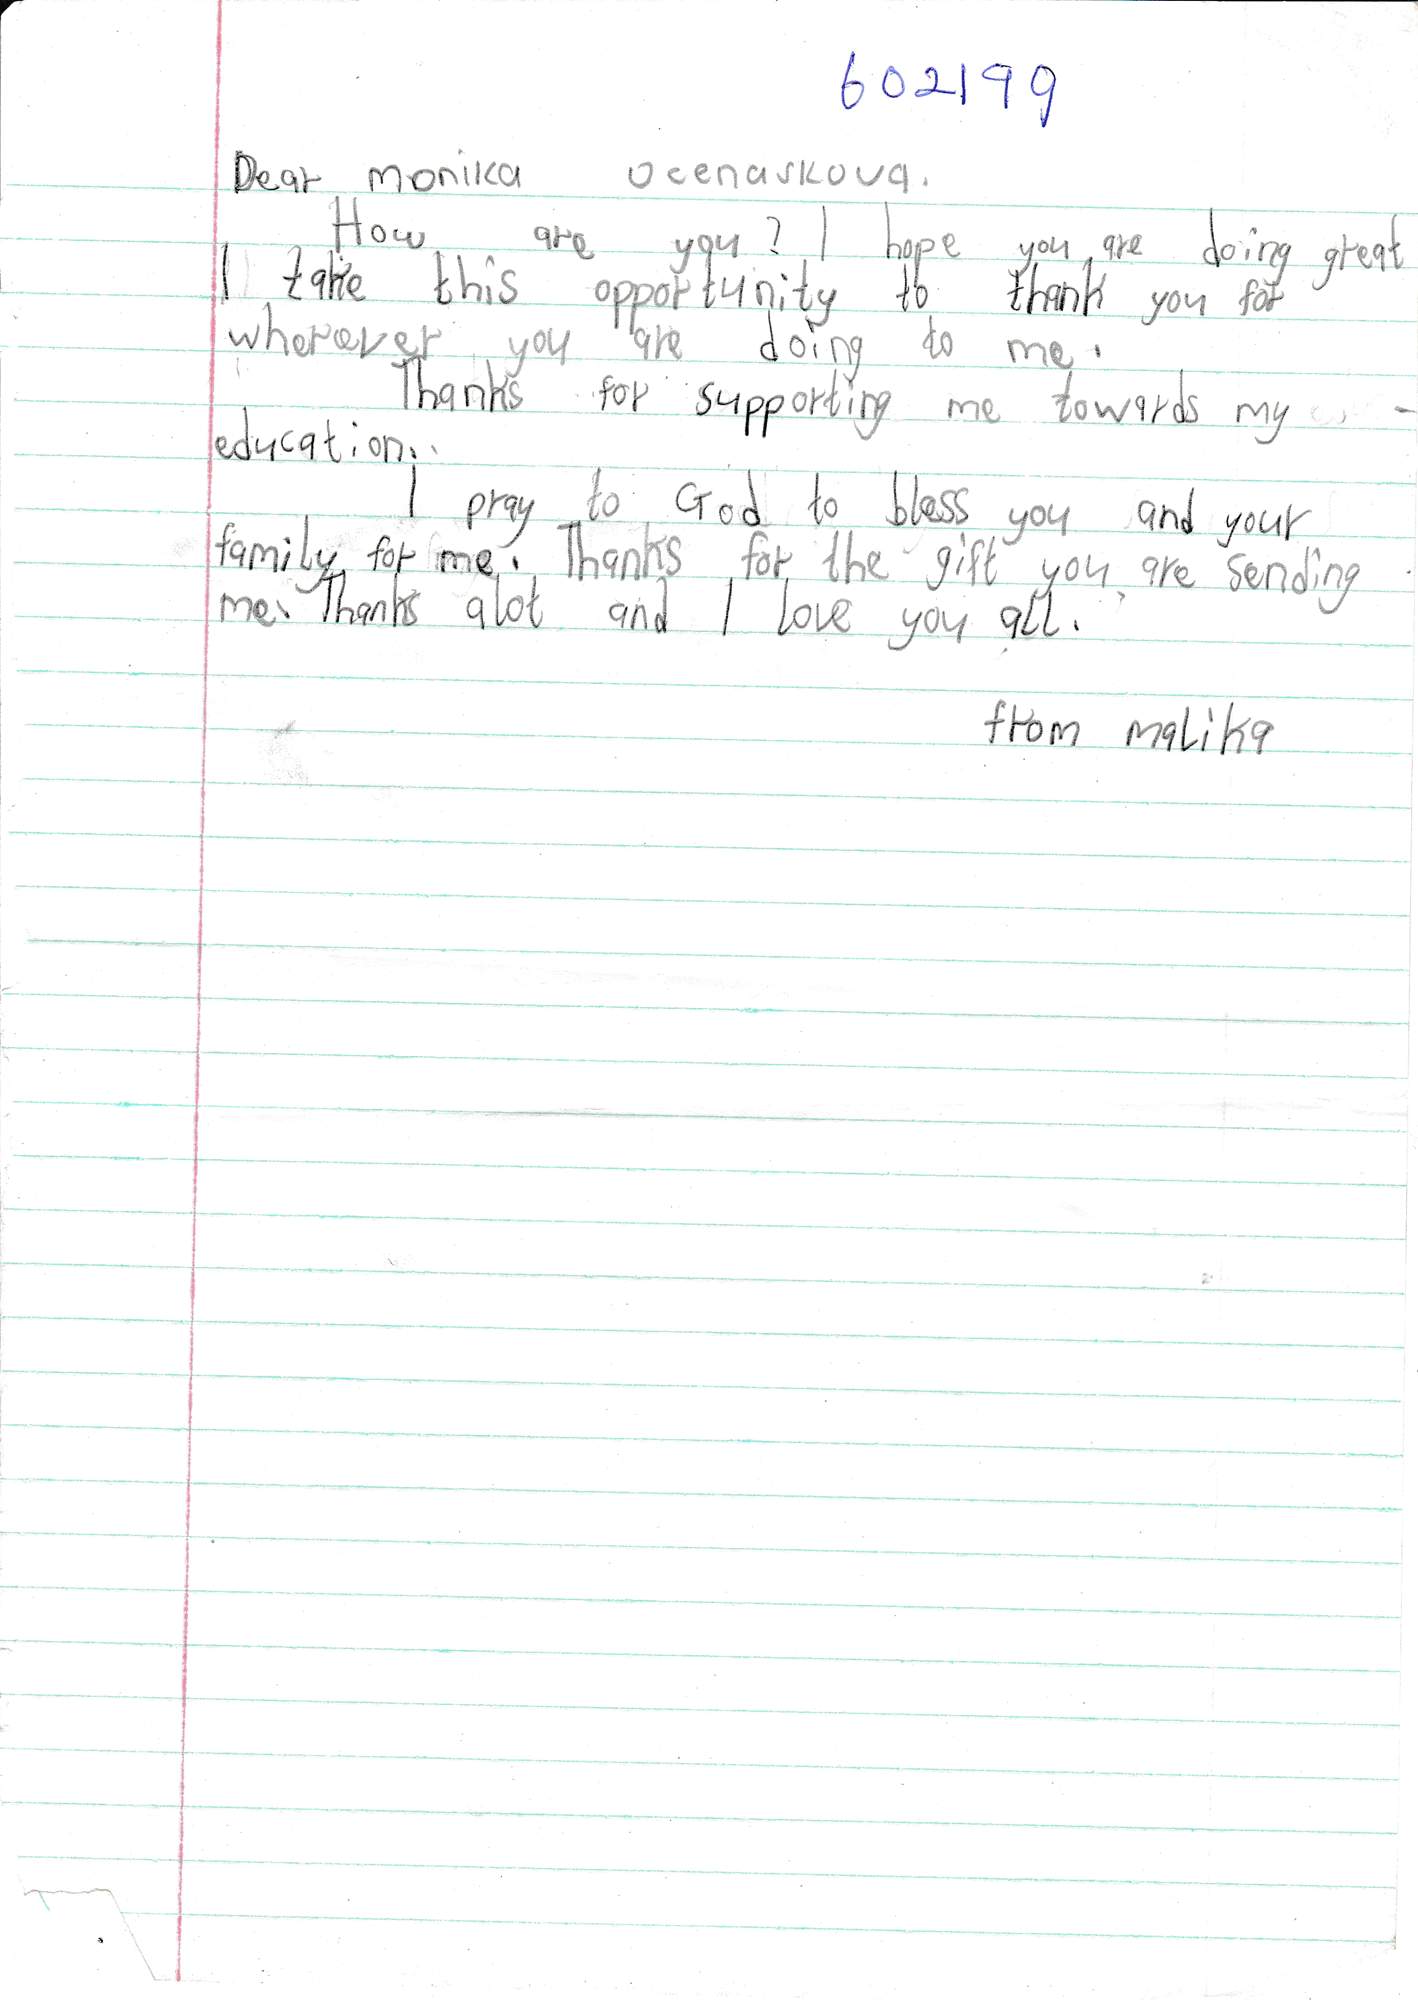 602199
Dear monika ocenaskova.
How are you? I hope you are doing great
I take this opportunity to thank you for
wherever you are doing to me.
Thanks for supporting me towards my
education.
I pray to God to bless you and your
family for me. Thanks for the gift you are sending
me. Thanks alot and I love you all.
from malika